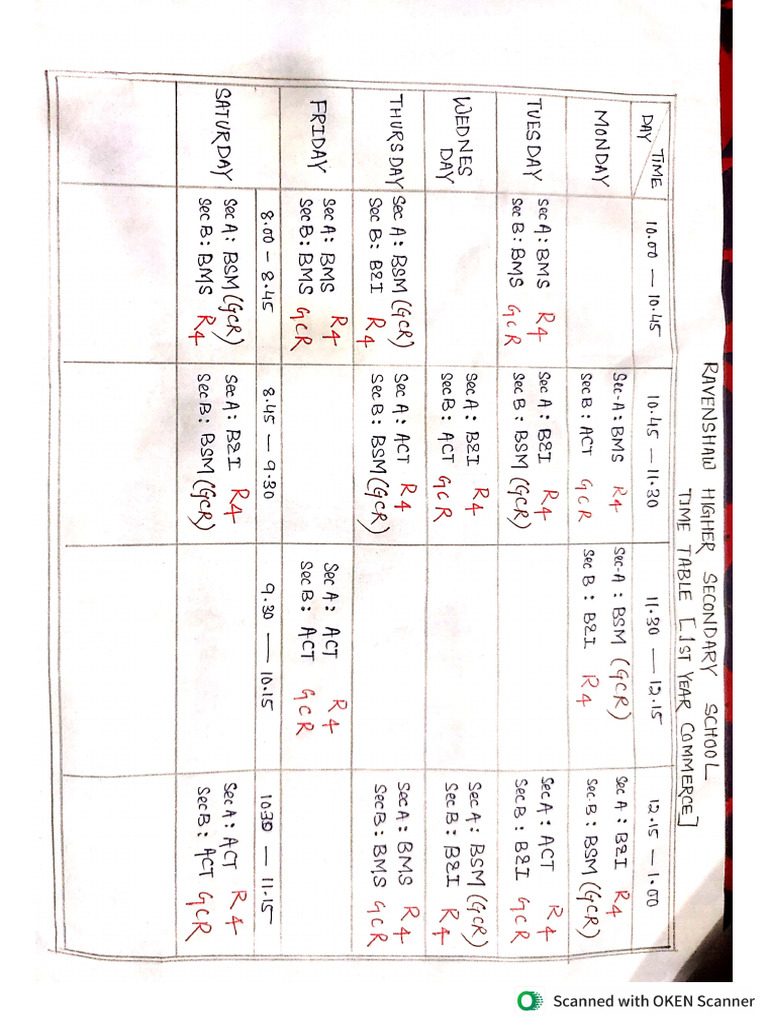 RAVENSHAW HIGHER SECONDARY SCHOOL
TIME TABLE [1ST YEAR COMMERCE]
TIME
DAY
10.00 — 10.45
10.45 — 11.30
11.30 — 12.15
12.15 — 1.00
MONDAY
Sec-A : BMS R4
Sec B : ACT GCR
Sec-A : BSM (GCR)
Sec B : B&I R4
Sec A : B&I R4
Sec-B : BSM (GCR)
TUESDAY
Sec A : BMS R4
Sec B : BMS GCR
Sec A : B&I R4
Sec B : BSM (GCR)
Sec A : ACT R4
Sec B : B&I GCR
WEDNES
DAY
Sec A : B&I R4
Sec B : ACT GCR
Sec A : BSM (GCR)
Sec B : B&I R4
THURSDAY
Sec A : BSM (GCR)
Sec B : B&I R4
Sec A : ACT R4
Sec B : BSM (GCR)
Sec A : BMS R4
Sec B : BMS GCR
FRIDAY
Sec A : BMS R4
Sec B : BMS GCR
Sec A : ACT R4
Sec B : ACT GCR
8.00 — 8.45
8.45 — 9.30
9.30 — 10.15
10.30 — 11.15
SATURDAY
Sec A : BSM (GCR)
Sec B : BMS R4
Sec A : B&I R4
Sec B : BSM (GCR)
Sec A : ACT R4
Sec B : ACT GCR
Scanned with OKEN Scanner